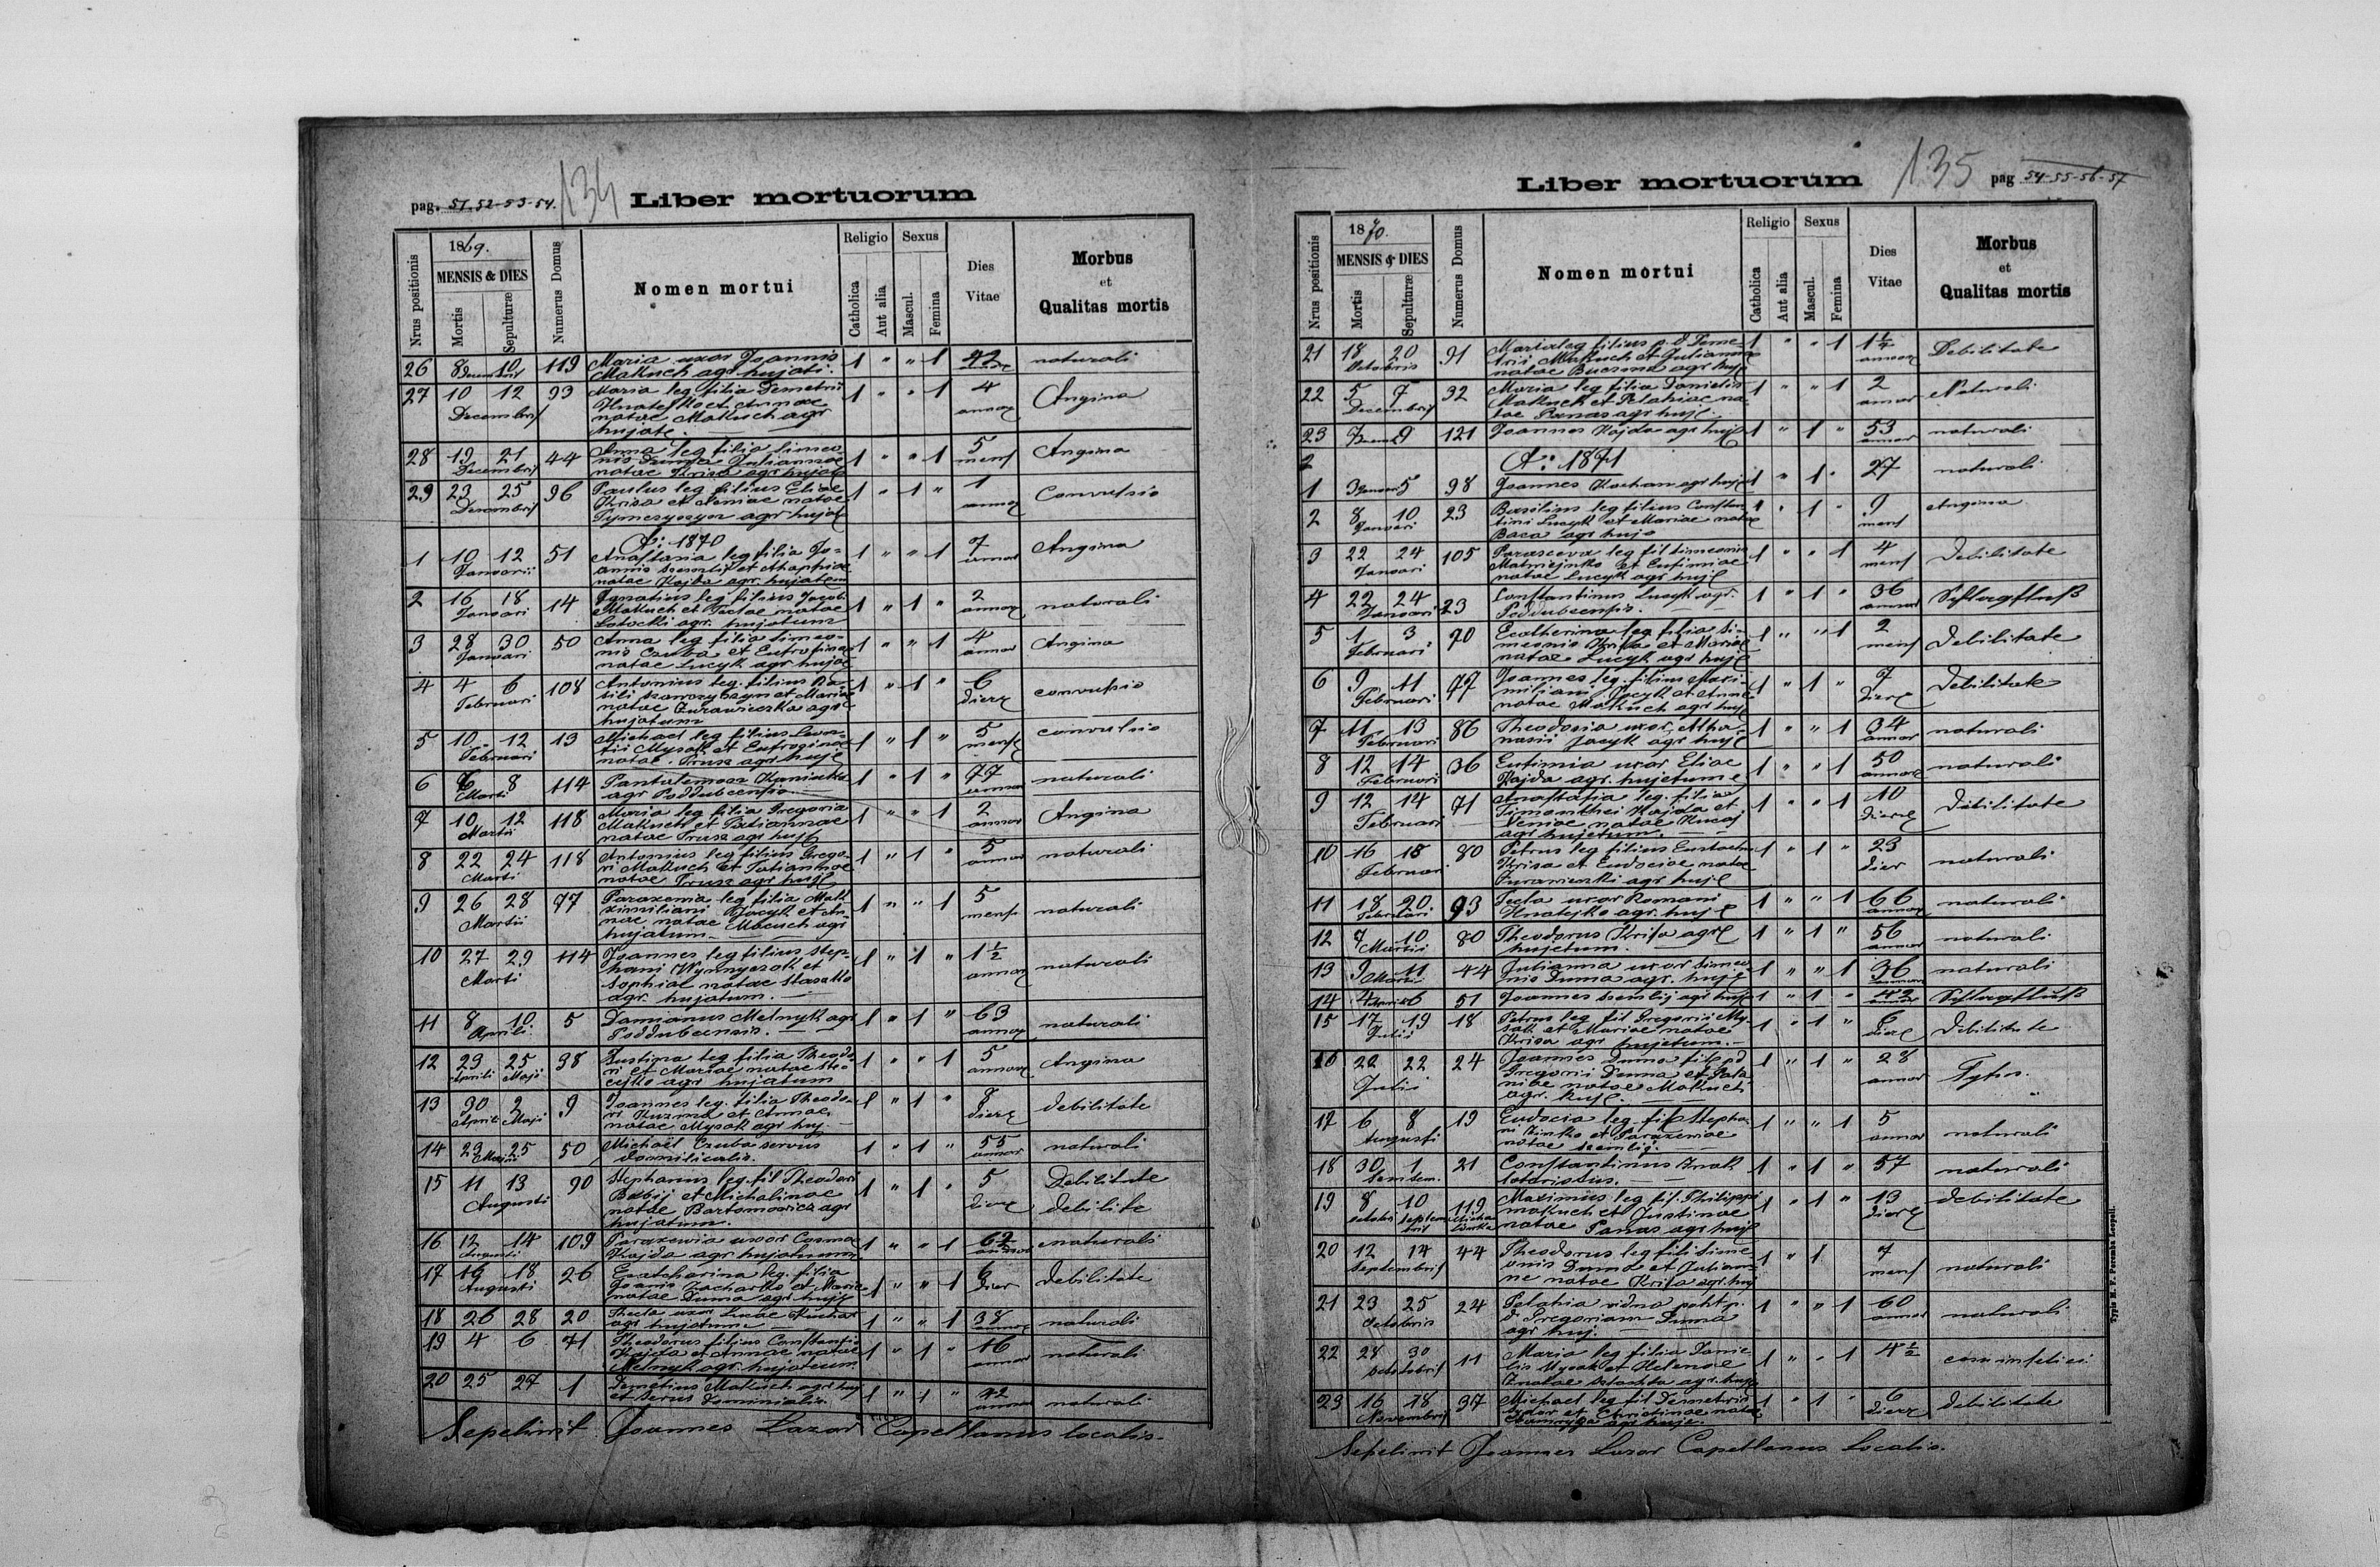 pag. 51.52-53-54. 134 Liber mortuorum
Nrus positionis
1869.
MENSIS & DIES
Mortis
Sepulturæ
Numerus Domus
Nomen mortui
Religio
Catholica
Aut alia
Sexus
Mascul.
Femina
Dies
Vitae
Morbus
et
Qualitas mortis
26 8 Decembris 10 119 Maria uxor Joannis 1 " " 1 42 naturali
Makuch agr hujati.
27 10 12 93 Maria leg filia Demetrii 1 " " 1 4 Angina
Decembris Hnatejko et Annae annor
natae Makuch agr
hujate.
28 19 21 44 Anna leg filia Simeo- 1 " " 1 5 Angina
Decembris nis Duma Juliannae mens
natae Krisa agr hujat
29 23 25 96 Paulus leg filius Eliae 1 " 1 " 1 Convulsio
Decembris Krisa et Xeniae natae
agr hujat
A: 1870
1 10 12 51 Anastasia leg filia Jo- 1 " " 1 7 Angina
Januarii annis et annor
natae Hajda agr. hujatem
2 16 18 14 Ignatius leg filius Jacobi 1 " 1 " 2 naturali
Januari Makuch et Teclae natae annor
agr. hujatum
3 28 30 50 Anna leg filia Simeo- 1 " " 1 4 Angina
Januari nis Czuba et Eufrosinae annor
natae Lucyk agr hujat
4 4 6 108 Antonius leg. filius Ba- 1 " 1 " 6 convulsio
Februari sili et Mariae dier
natae Zurawiecka agr
hujatum
5 10 12 13 Michael leg filius Leon- 1 " 1 " 5 convulsio
Februari tii Mysak et Eufroginae mens
natae Prusz agr huj
6 6 8 114 Pantalemon 1 " 1 " 77 naturali
Marti agr Poddubcensis. annor
7 10 12 118 Maria leg filia Gregoria 1 " " 1 2 Angina
Martii Makuch et Tatiannae annor
natae Prusz agr huj
8 22 24 118 Antonius leg filius Grego- 1 " 1 " 5 naturali
Marti ri Makuch et Tatiannae annor
natae Prusz agr huj
9 26 28 77 Paraxenia leg filia Mak 1 " " 1 5 naturali
Martii ximiliani Jacyk et An- mens
nae natae Mocuch agr
hujatum
10 27 29 114 Joannes leg filius Step- 1 " 1 " 1½ naturali
Marti hani et annor
Sophiae natae
agr. hujatum.
11 8 10 5 Damianus Melnyk agr 1 " 1 " 63 naturali
Aprili Poddubcensis. annor
12 23 25 38 Justina leg filia Theodo- 1 " " 1 5 Angina
Aprili Maji ri et Mariae natae Ste- annor
cyko agr hujatum
13 30 2 9 Joannes leg. filia Theodo- 1 " 1 " 8 debilitate
Aprili Maji ri Kuzma et Annae dier
natae Mysak agr huj.
14 23 25 50 Michael Czuba servus 1 " 1 " 55 naturali
Maji annor
15 11 13 90 Stephanus leg. fil Theodori 1 " 1 " 5 Debilitate
Augusti Babij et Michalinae dier debilite
natae Bartomowicz agr
hujatum.
16 12 14 109 Paraxewia uxor Cosmae 1 " " 1 62 naturali
Augusti Hajda agr hujatum annor
17 16 18 26 Ecatherina leg. filia 1 " " 1 6 debilitate
Augusti Joannis Zacharko et Mariae dier
natae Duma agr huj
18 26 28 20 Thecla uxor Lucae 1 " " 1 38 naturali
agr hujatum annor
19 4 6 71 Theodorus filius Constantin 1 " 1 " 16 naturali
Hajda et Annae natae annor
Melnyk agr. hujatum
20 25 27 1 Demetius Makuch agr huj 1 " 1 " 42 naturali
et servus annor
Sepelivit Joannes Lazor Capellanus localis.
Liber mortuorum 135 pag 54-55-56-57
Nrus positionis
1870.
MENSIS & DIES
Mortis
Sepulturæ
Numerus Domus
Nomen mortui
Religio
Catholica
Aut alia
Sexus
Mascul.
Femina
Dies
Vitae
Morbus
et
Qualitas mortis
21 18 20 91 Maria leg filius p. d Deme- 1 " " 1 1¼ Debilitate
Octobris trii Makuch et Julianna annor
natae agr huj
22 5 7 32 Maria leg filia Danielis 1 " " 1 2 Naturali
Decembris Makuch et Pelahiae na- annor
tae Panas agr huj.
23 7 9 121 Joannes Hajda agr huj 1 " 1 " 53 naturali
A: 1871
1 3 Januari 5 98 Joannes Kochan agr huj 1 " 1 " 27 naturali
2 8 10 23 Basilius leg filius Constan 1 " 1 " 9 Angina
Januari tini Lucyk et Mariae natae mens
Baca agr huj
3 22 24 105 Parasceva leg fil Simeonis 1 " " 1 4 Debilitate
Januari et Eufimiae mens
natae Lucyk agr huj
4 22 24 23 Constantinus Lucyk agr. 1 " 1 " 36 Schlagfluß
Januari Poddubcensis. annor
5 1 3 70 Ecatherina leg filia Si- 1 " " 1 2 Debilitate
Februari meonis Krisa et Mariae mens
natae Lucyk agr huj
6 9 11 77 Joannes leg. filius Maxi- 1 " 1 " 7 Debilitate
Februari miliani Jacyk et Annae dier
natae Makuch agr huj
7 11 13 86 Theodosia uxor Atha- 1 " " 1 34 naturali
Februari nasii Jacyk agr huj annor
8 12 14 36 Eufimia uxor Eliae 1 " " 1 50 naturali
Februari Hajda agr. hujetum annor
9 12 14 71 Anastasia leg. filia 1 " " 1 10 Debilitate
Februari Timothei Hajda et dier
Xeniae natae Kucaj
agr hujetum.
10 16 18 80 Petrus leg filius Eustachi 1 " 1 " 23 naturali
Februari Krisa et Eudociae natae dier
Zurawienki agr huj
11 18 20 93 Tecla uxor Romani 1 " " 1 66 naturali
Februari Hnatejko agr. huj annor
12 7 10 80 Theodorus Krisa agr 1 " 1 " 56 naturali
Martii hujetum. annor
13 9 11 44 Julianna uxor Simeo 1 " " 1 36 naturali
Martii nis Duma agr. huj annor
14 4 6 51 Joannes agr huj 1 " 1 " 42 Schlagfluß
annor
15 17 19 18 Petrus leg fil Gregorii My- 1 " 1 " 6 Debilitate
Julii sak et Mariae natae dier
Krisa agr hujetum.
16 22 22 24 Joannes Duma fil pd 1 " 1 " 28
Julii Gregorii Duma et Pela annor
natae Makuch
agr. huj.
17 6 8 19 Eudocia leg. fil Stepha- 1 " " 1 5 naturali
Augusti ni et Paraxeniae annor
natae
18 30 1 21 Constantinus Znak 1 " 1 " 57 naturali
19 8 10 119 Maximus leg fil. Philippi 1 " 1 " 13 debilitate
Makuch et Justinae dier
natae Panas agr huj
20 12 14 44 Theodorus leg fili Sime- 1 " 1 7 naturali
Septembris onis Duma et Julian- mens
ne natae Krisa agr. huj
21 23 25 24 Pelahia vidua post p. 1 " " 1 60 naturali
Octobris d. Gregoriam Duma annor
agr huj.
22 28 30 11 Maria leg filia Danie- 1 " " 1 4½
lis Mysak et Helenae
agr. huj
23 16 18 37 Michael leg fil Demetrii 1 " 1 " 6 debilitate
Novembris et Christinae natae dier
agr huj.
Sepelivit Joannes Lazor Capellanus Localis.
Typis M. F. Poremba Leopoli.